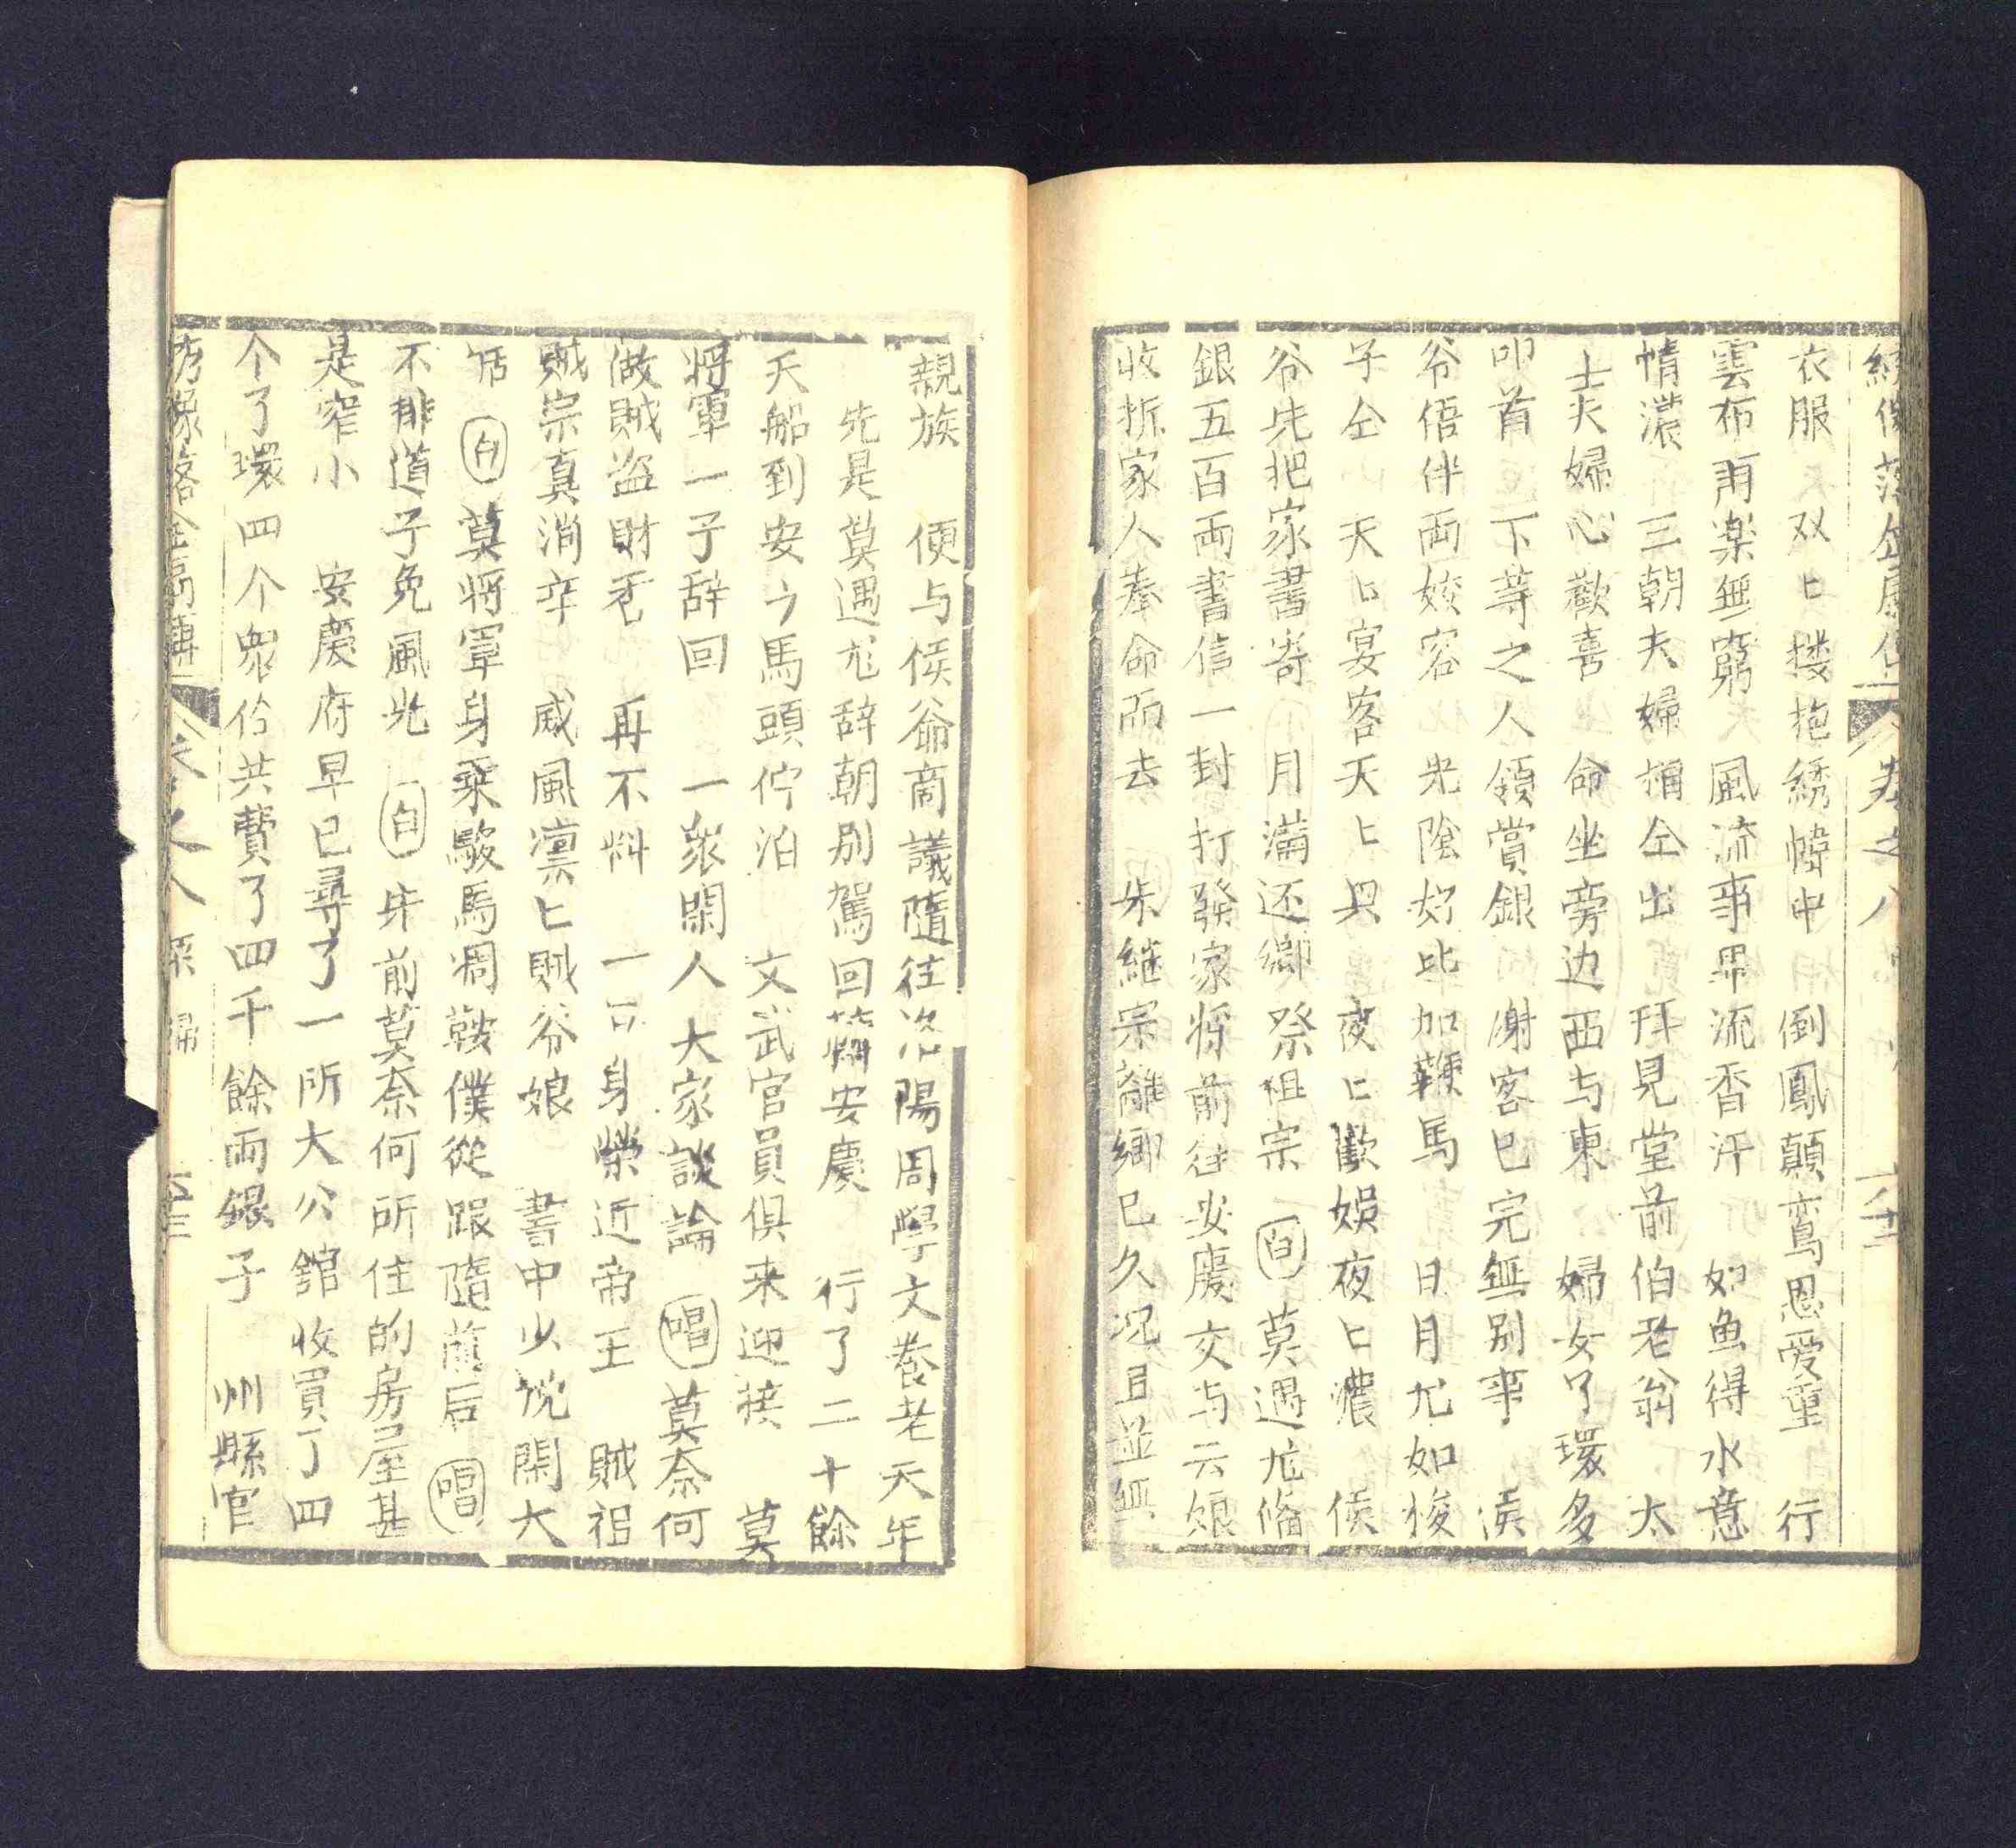 衣服 双匕摟抱綉幃中 倒鳳顛鸾恩爱重 行
雲布雨楽無窮 風流事畢流香汗 如魚得水意
情濃 三朝夫婦揖仝出 拜見堂前伯老翁 太
士夫婦心歡喜 命坐旁边西与東 婦女丫環多
叩首 下等之人領賞銀 謝客已完無别事 侯
爷悟伴両姣容 光陰好比加鞭馬 日月尤如梭
子仝 天匕宴客天匕興 夜匕歡娯夜匕濃 侯
爷先把家書寄 月滿还鄉祭祖宗 白 莫遇尤俻
銀五百両書信一封打發家將前往安慶交与云娘
收拆家人奉命而去 朱継宗離鄉已久况且並無
親族 便与侯爺商議隨往洛陽周學文養老天年
先是莫遇尤辞朝别駕回籍安慶 行了二十餘
天船到安ㄅ馬頭佇泊 文武官員俱来迎接 莫
將軍一子辞回 一衆閑人大家談論 唱 莫奈何
做賊盗財禿 再不料 一身榮近帝王 賊祖
賊宗真淌辛 威風凛匕賊爷娘 書中少说閑大
話 白 莫將軍身乘駿馬凋鞍僕從跟隨前后 唱
不排道子免風光 白 先前莫奈何所住的房屋甚
是窄小 安慶府早已尋了一所大公舘收買丁四
个了環四个衆伶共費了四千餘両銀子 州縣官
卷之八